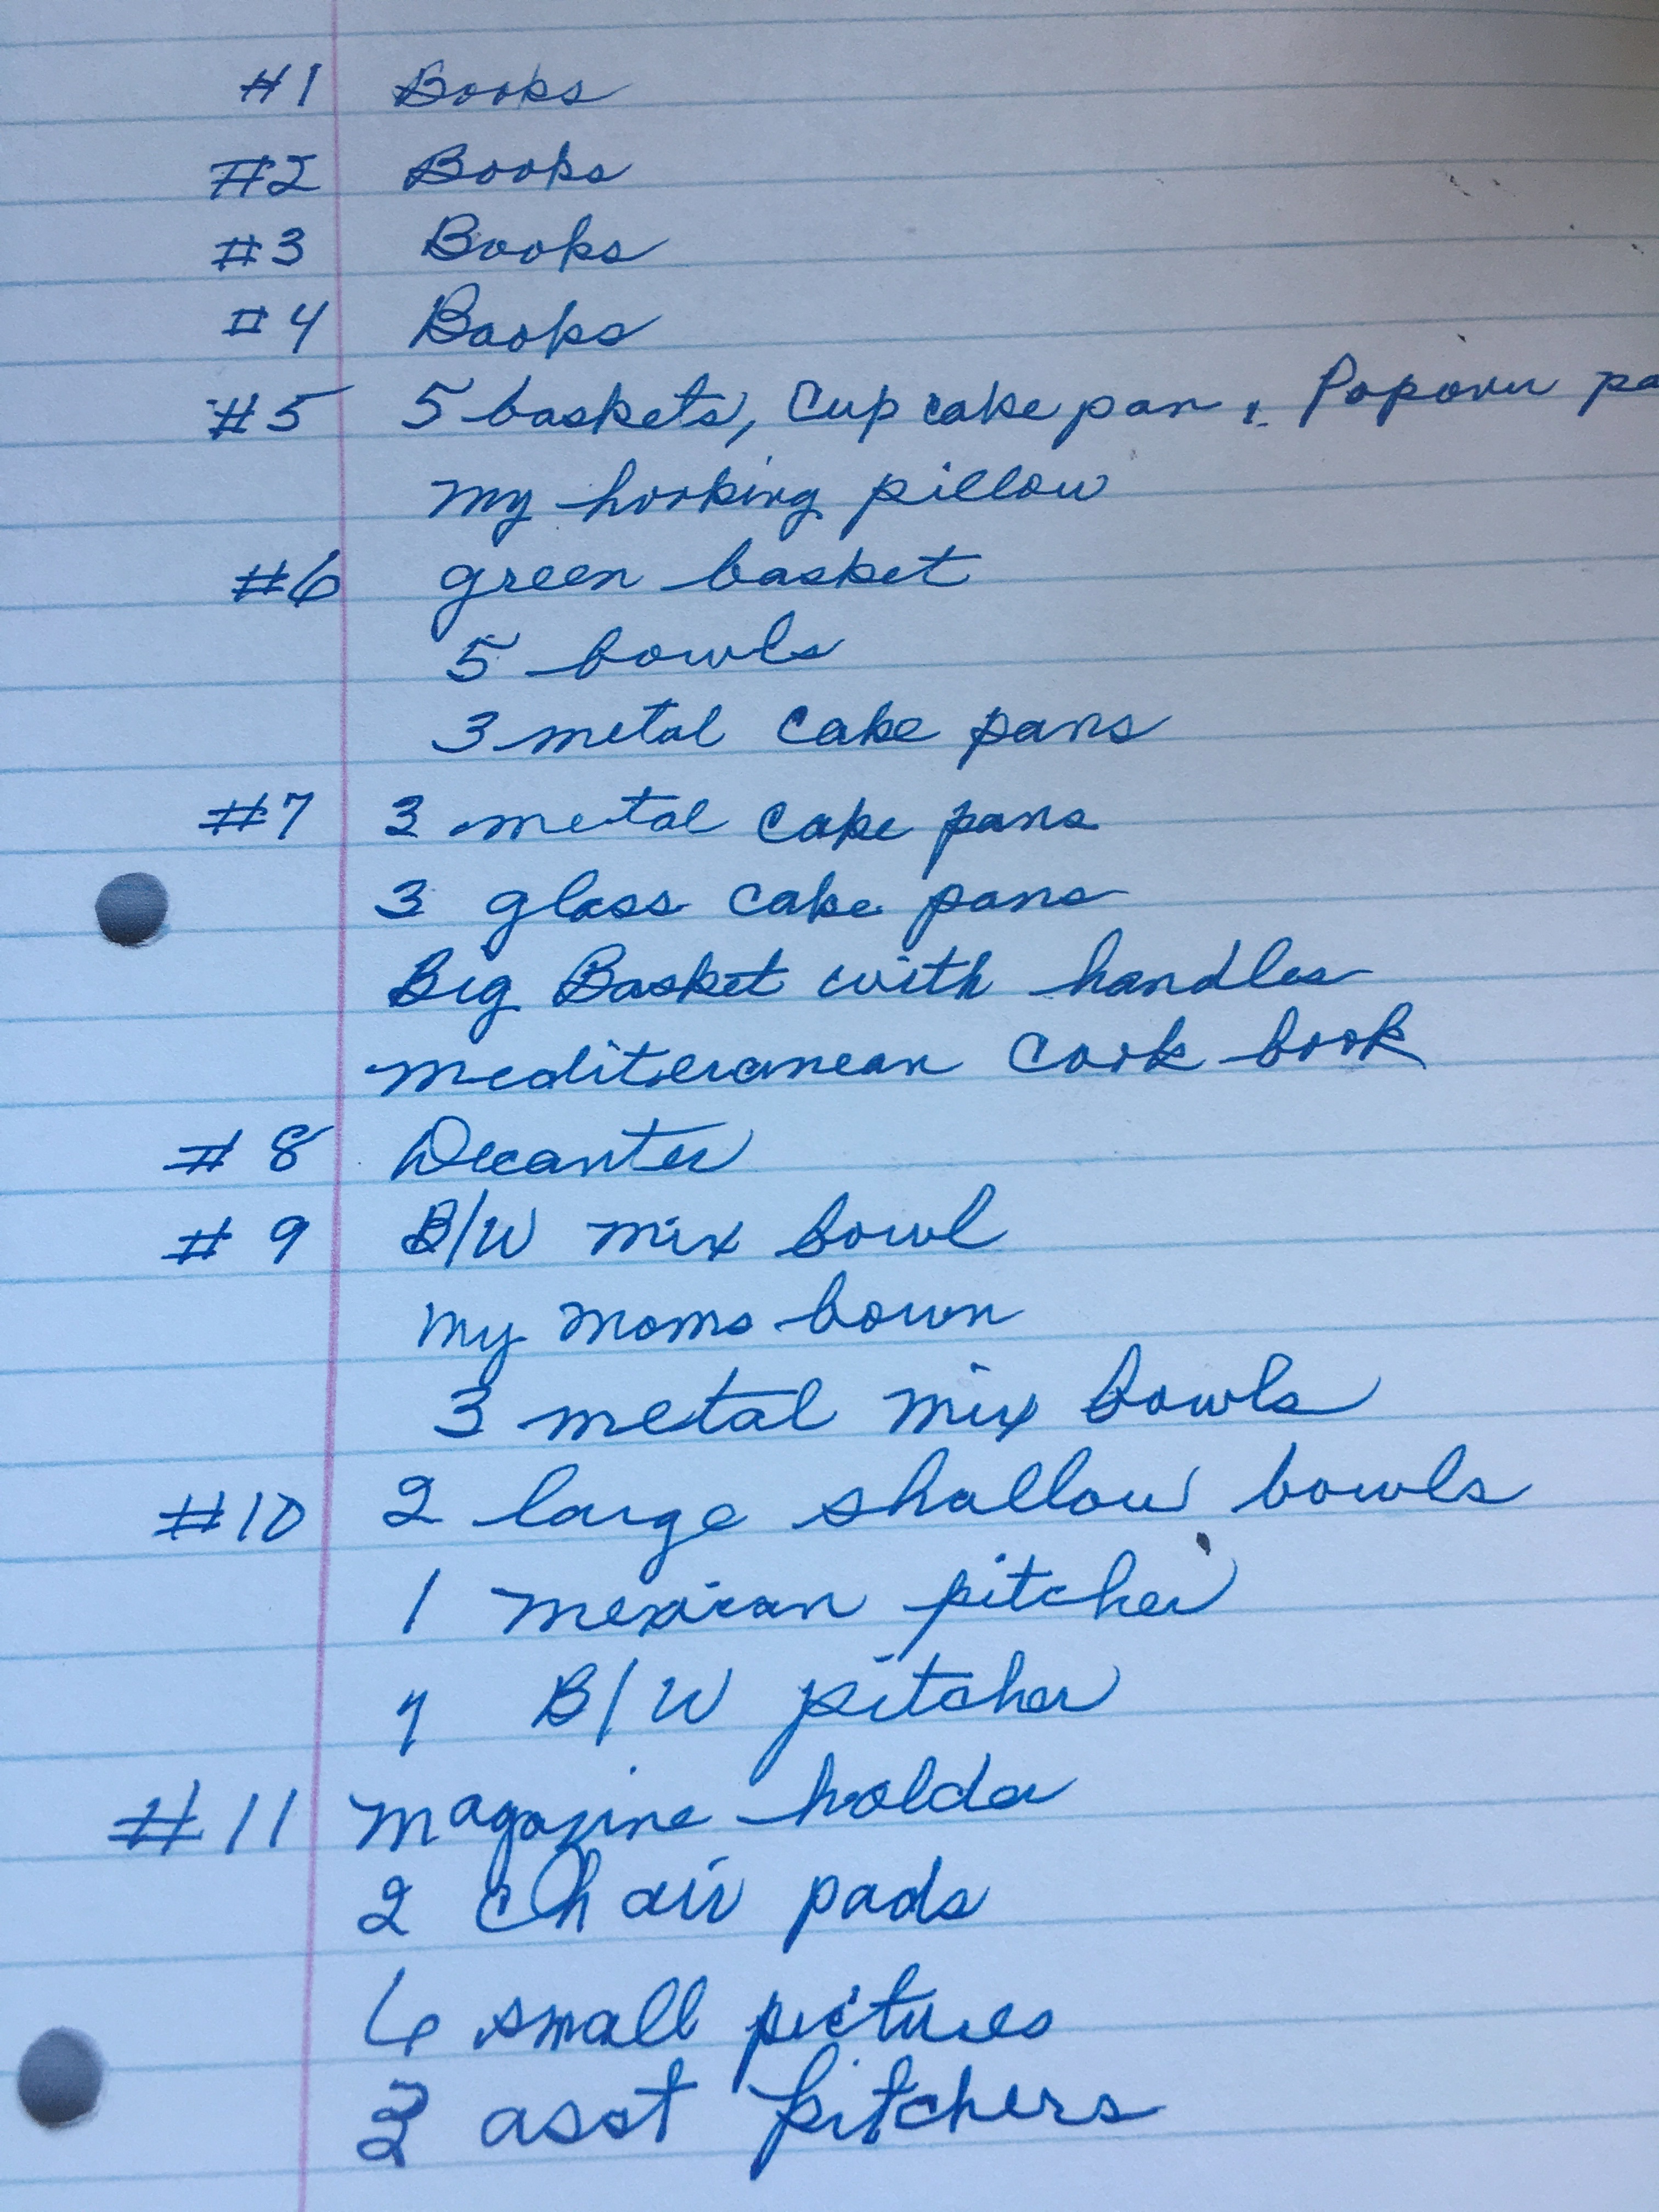 #1 Books
#2 Books
#3 Books
#4 Books
#5 5 baskets, Cup cake pan, Popover pa
my hooking pillow
#6 green basket
5 bowls
3 metal cake pans
#7 3 metal cake pans
3 glass cake pans
Big Basket with handles
Mediteranean Cook book
#8 Decanter
#9 B/W mix bowl
My Moms bown
3 metal mix bowls
#10 2 large shallow bowls
1 Mexican pitcher
1 B/W pitcher
#11 Magazine holder
2 Chair pads
6 small pictures
asst pitchers